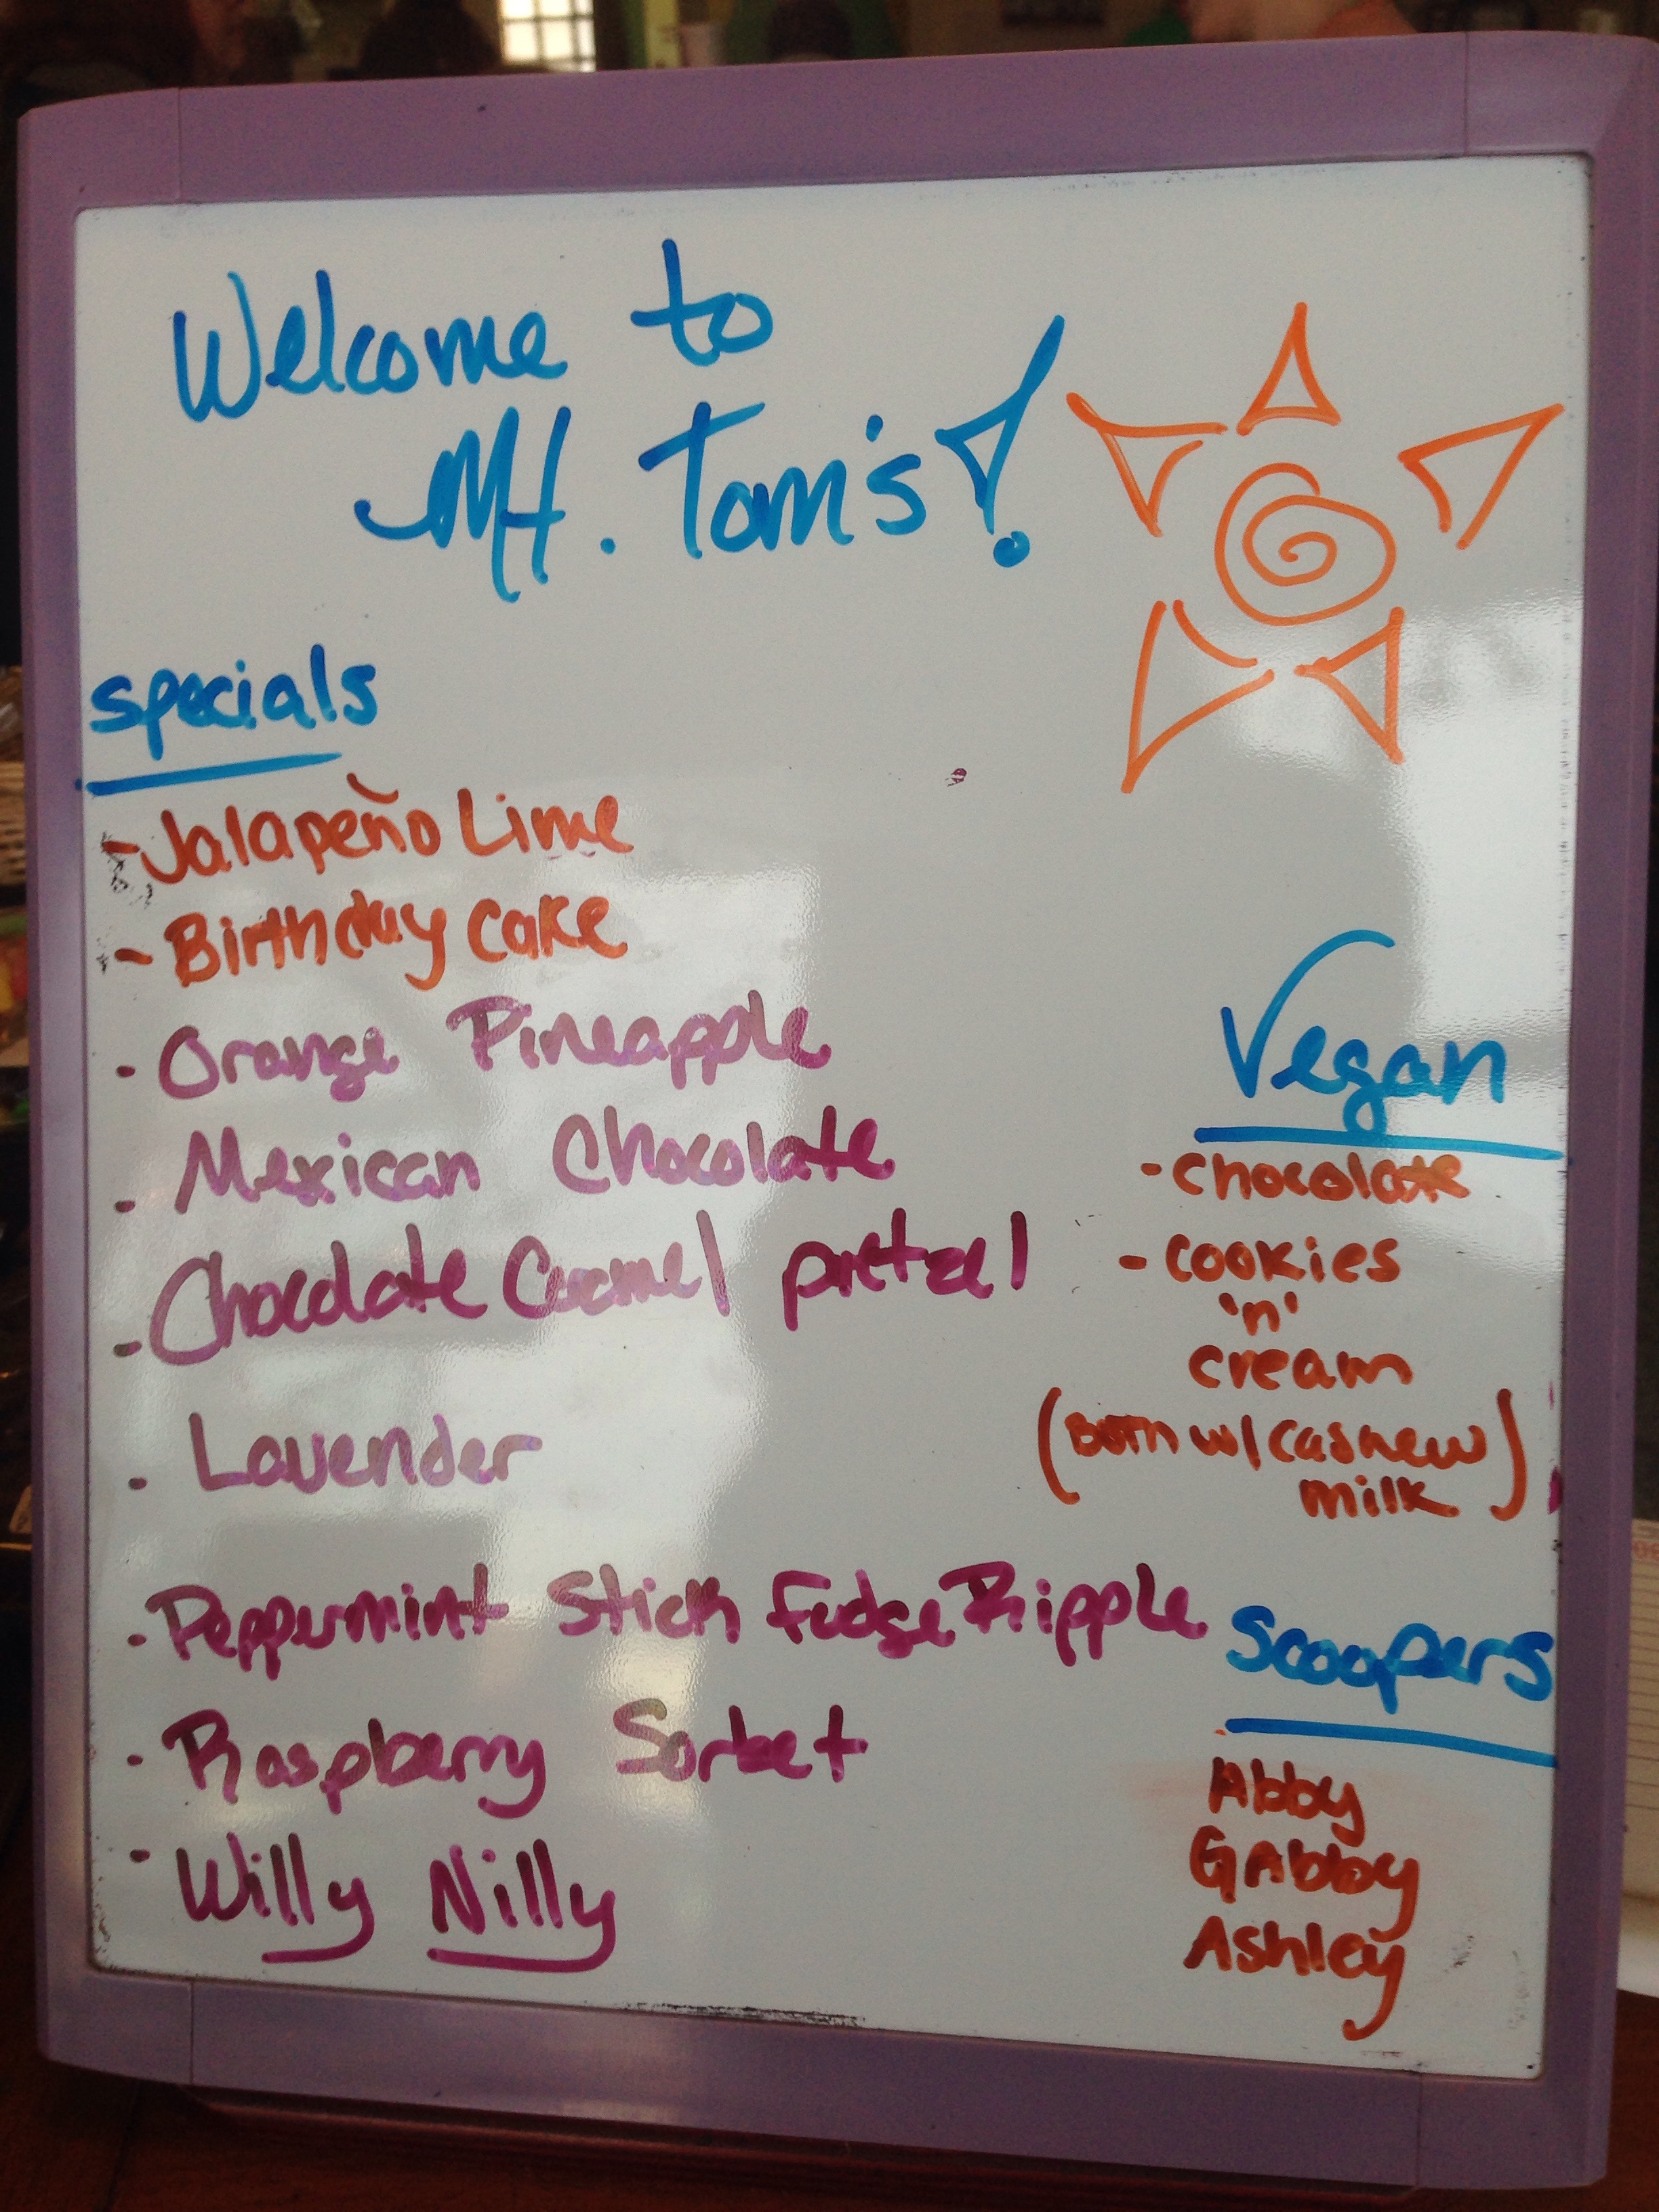 Welcome to
Mt. Tom's!
Specials
- Jalapeño Lime
- Birthday Cake
- Orange Pineapple
- Mexican Chocolate
- Chocolate Caramel pretzel
- Lavender
- Peppermint Stick Fudge Ripple
- Raspberry Sorbet
- Willy Nilly
Vegan
- chocolate
- cookies
'n'
cream
(Both w/ cashew
milk)
Scoopers
Abby
GAbby
Ashley